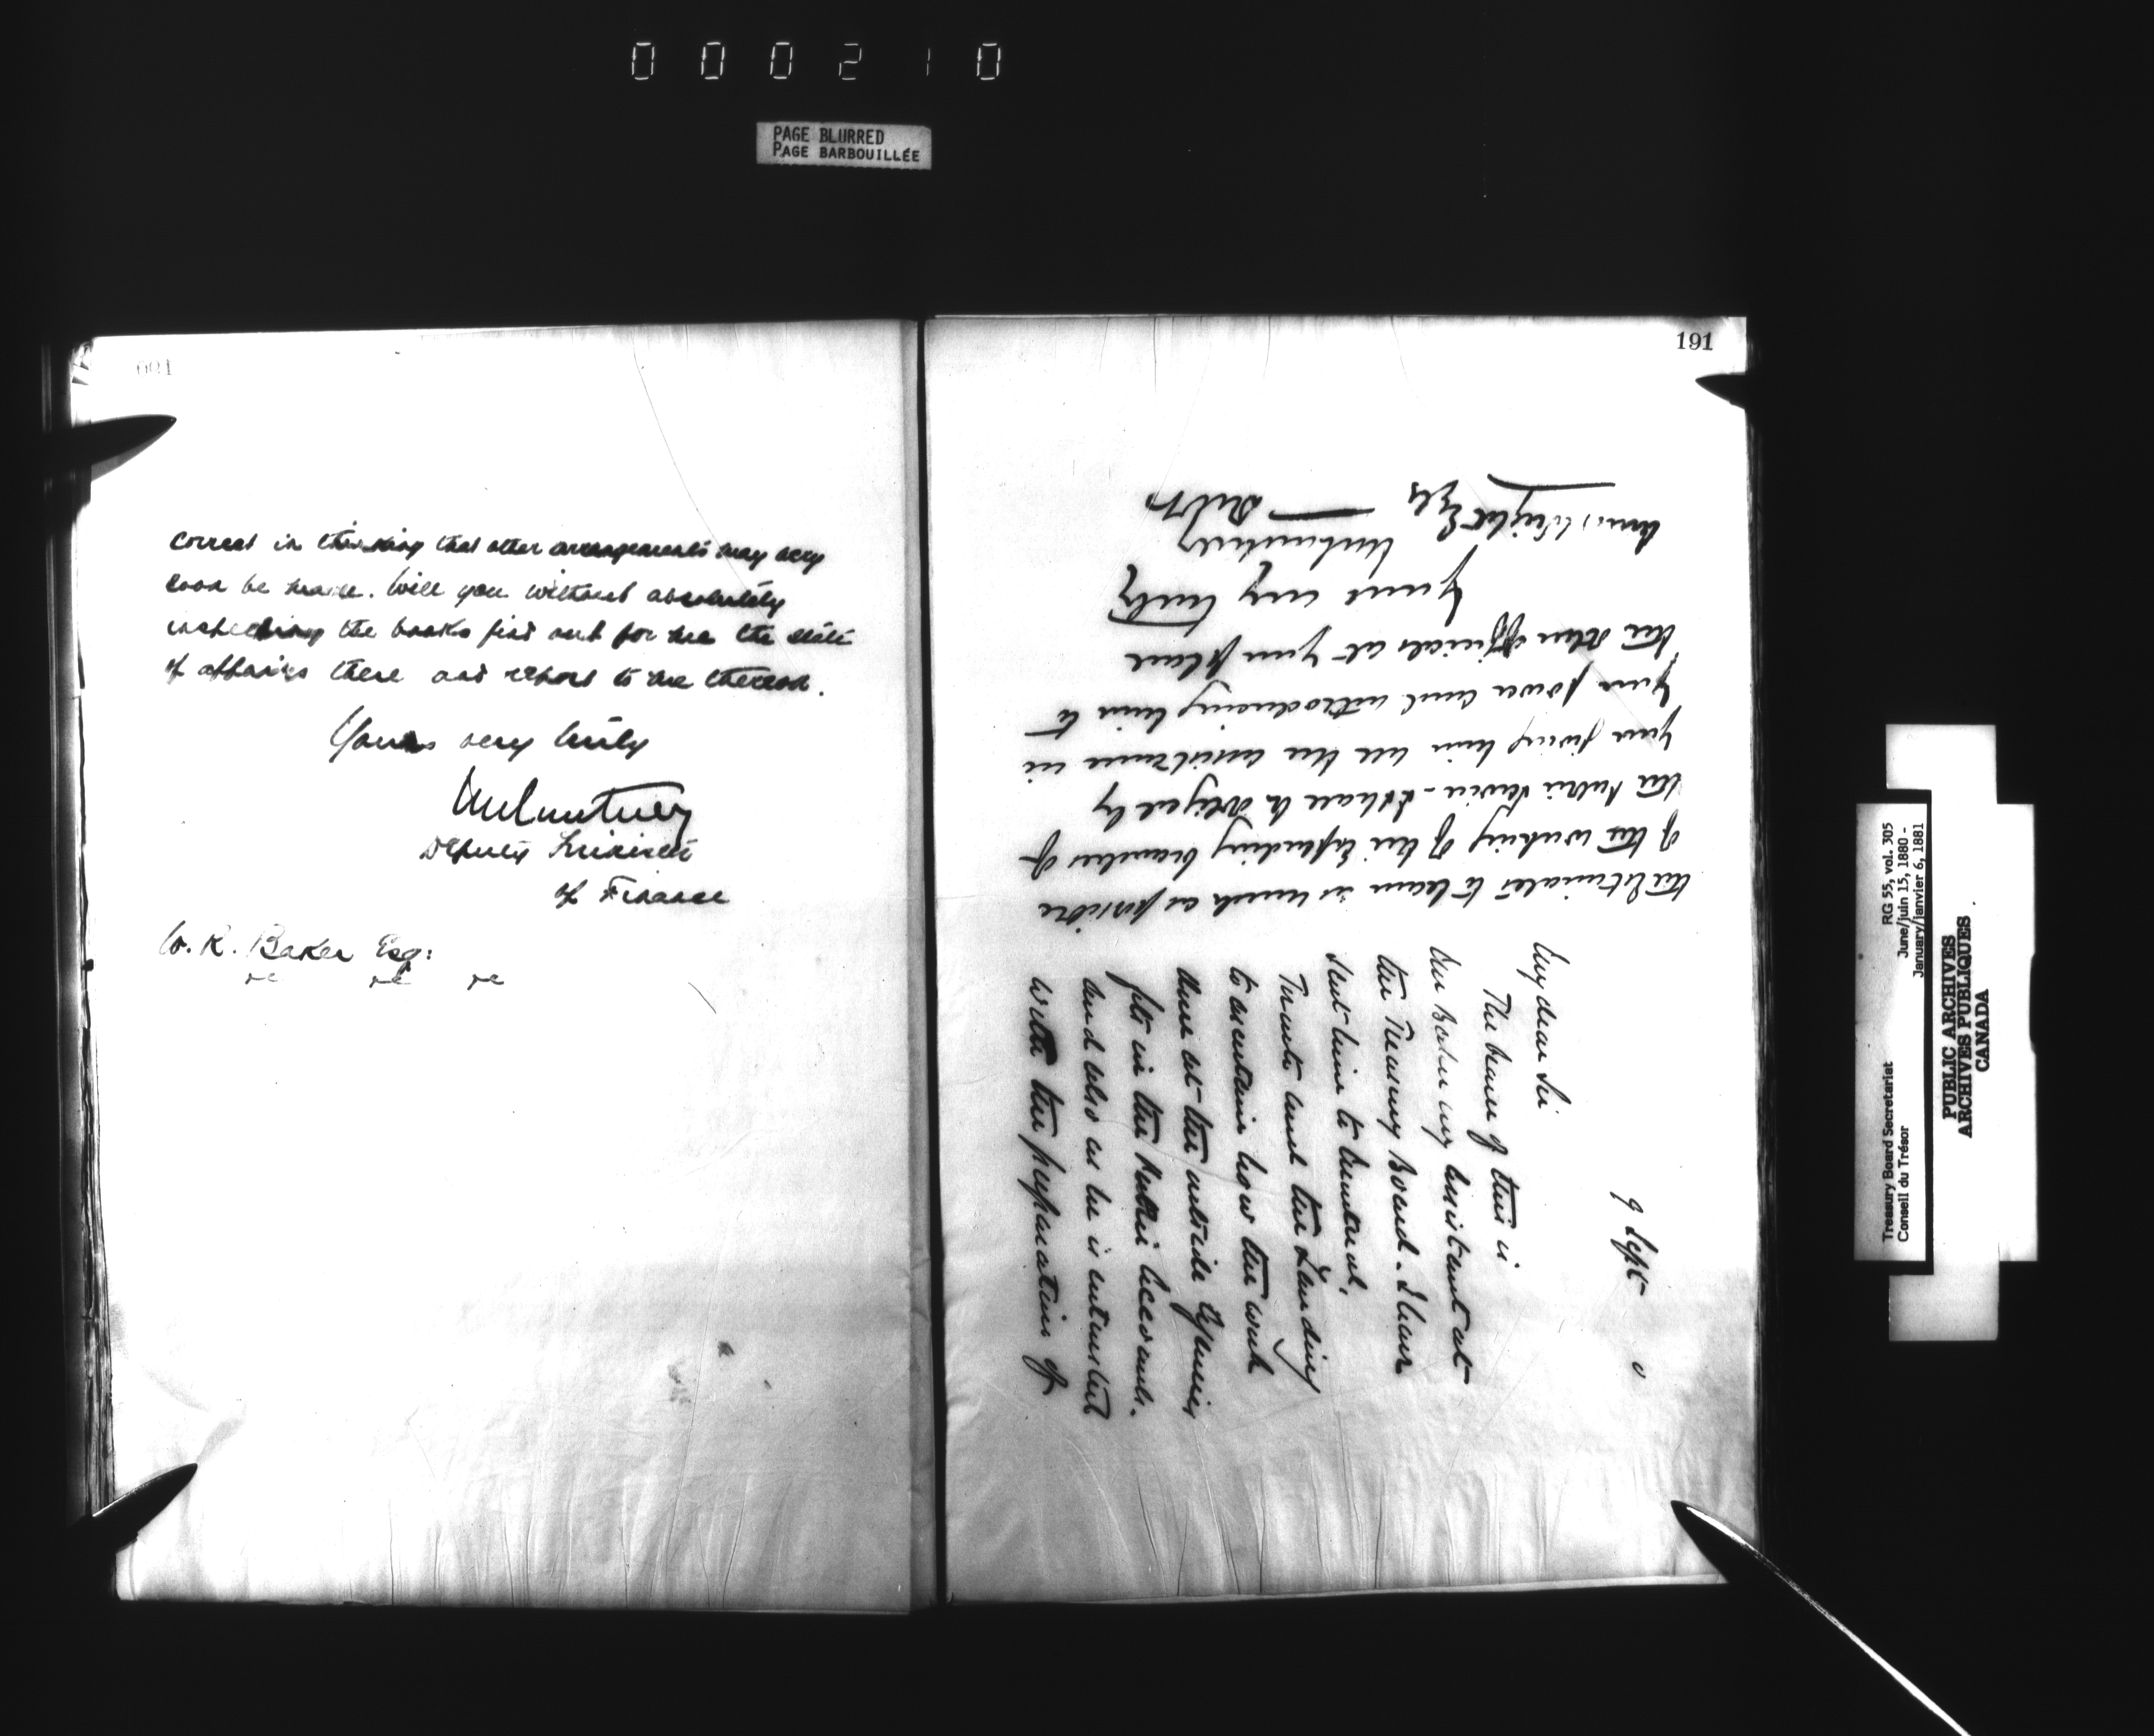 000210
PAGE BLURRED
PAGE BARBOUILLÉE
correct in thinking that other arrangements may very
soon be made. Will you without absolutely
inspecting the books find out for me the state
of affairs there and report to me thereon.
Yours very truly
Deputy Minister
of Finance
W. R. Baker Esq:
191
9 Sept 0
My dear Sir
The bearer of this is
Mr my assistant at
the Treasury Board. I have
sent him to Montreal,
Toronto and the Landing
to ascertain how the work
done at the outside Agencies
fits in the Public Accounts.
and also as he is entrusted
with the preparation of
the Estimates to learn as much as possible
of the working of the Spending branches of
the Public Service - I shall be obliged by
your giving him all the assistance in
your power and introducing him to
the other officials at your place
Yours very truly
Wright Esq
Treasury Board Secretariat RG 55, vol. 305
Conseil du Trésor June/juin 15, 1880 -
January/janvier 6, 1881
PUBLIC ARCHIVES
ARCHIVES PUBLIQUES
CANADA